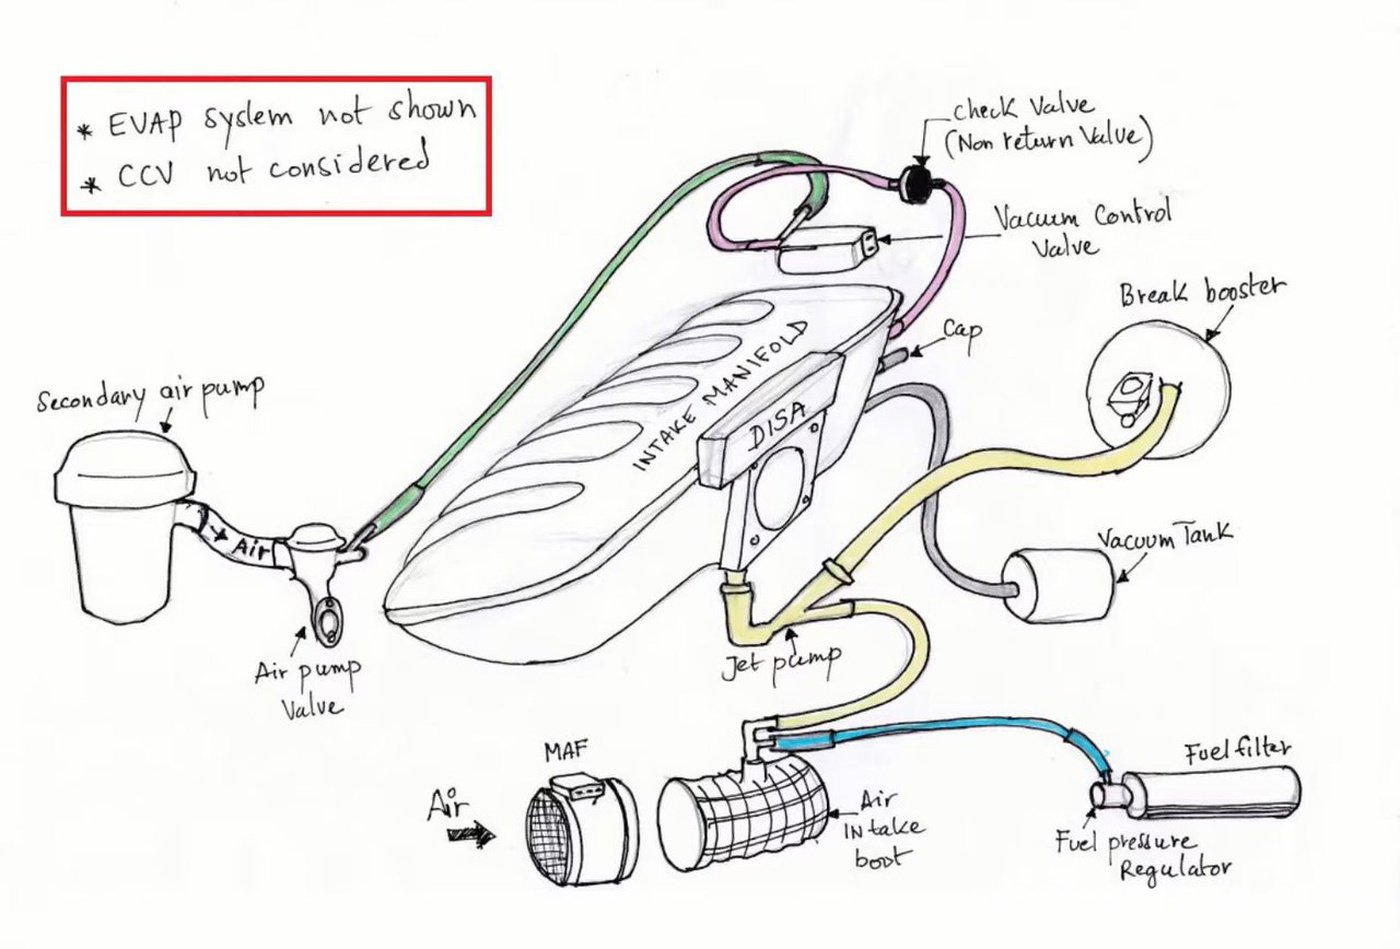 * EVAP system not shown
* CCV not considered
Check Valve
(Non return Valve)
Vacuum Control
Valve
Break booster
Cap
Secondary air pump
INTAKE MANIFOLD
DISA
Air
Vacuum Tank
Air pump
Valve
Jet pump
MAF
Air
Air
INtake
boot
Fuel filter
Fuel pressure
Regulator